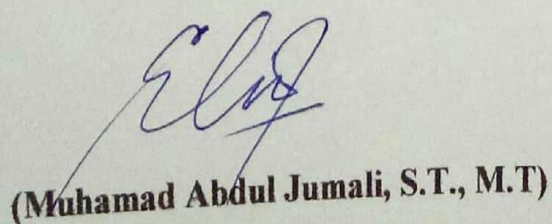 (Muhamad Abdul Jumali, S.T., M.T)